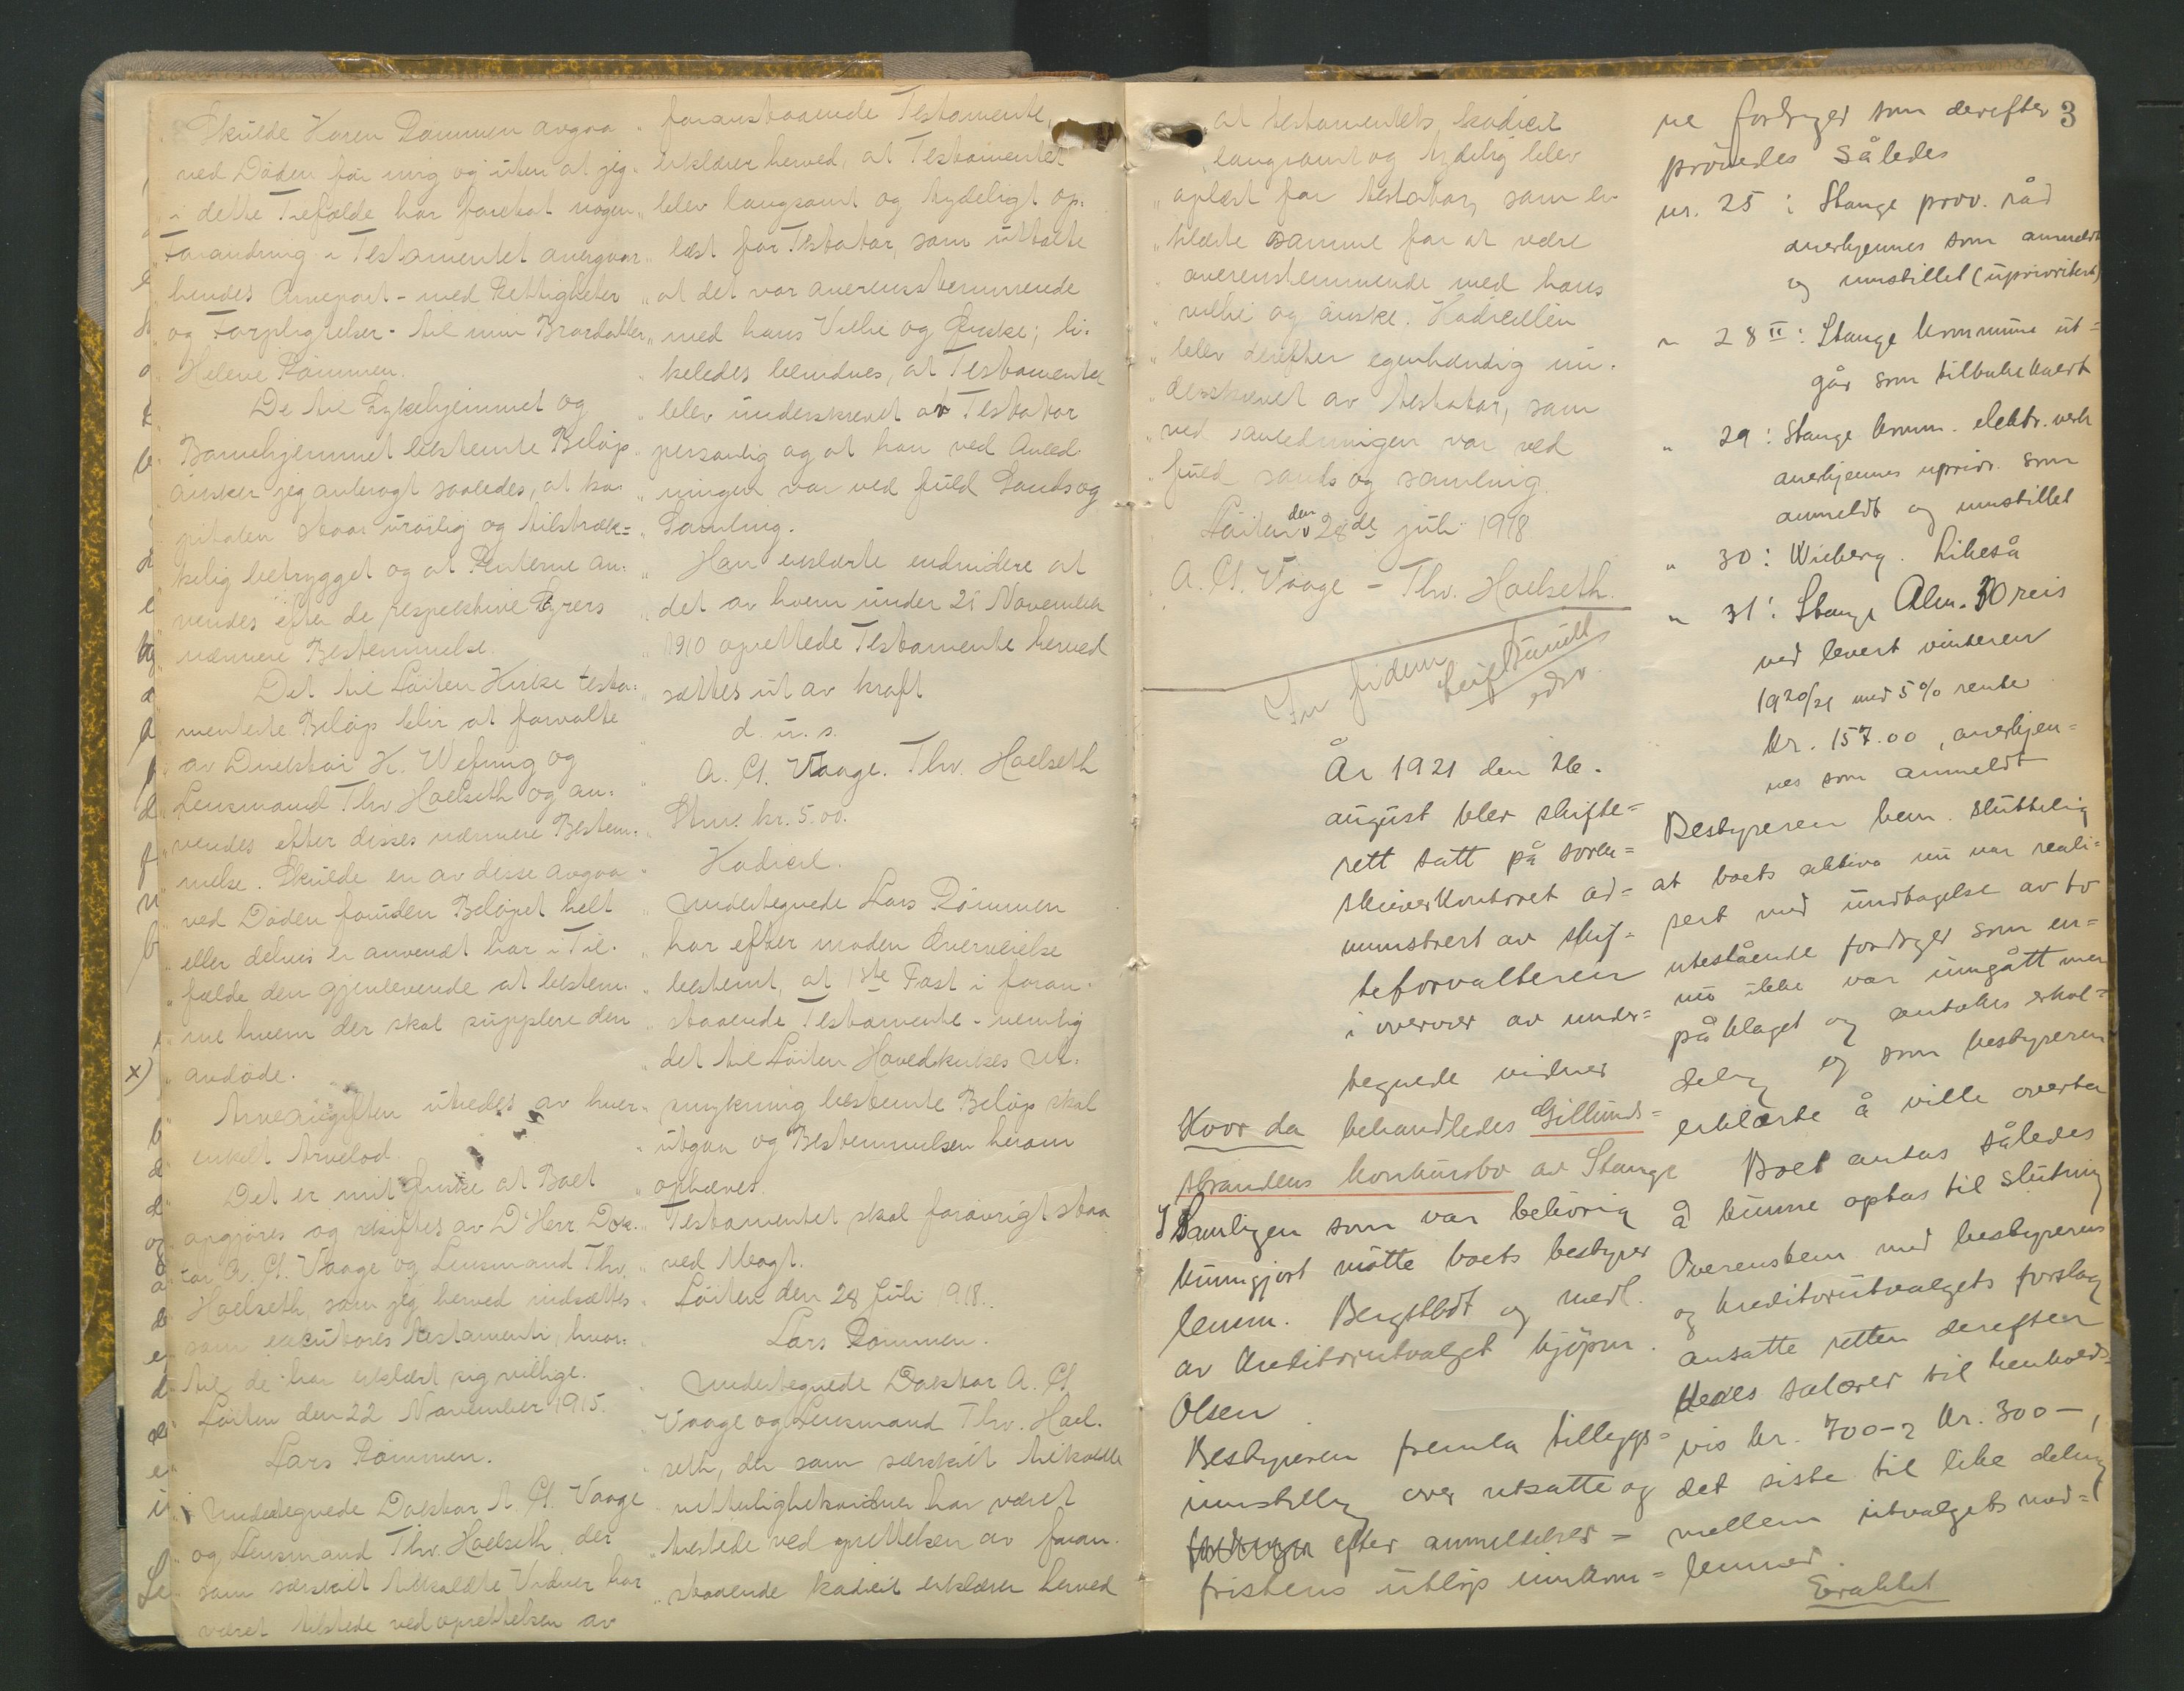 Skulde Karen Rømmen avgaa
ved Døden før mig og uten at jeg
i dette Tilfælde har foretat nogen
Forandring i Testamentet overgaar
hendes Arvepart - med Rettigheter
og Forpligtelser - til min Brordatter
Helene Rømmen.
De til Sykehjemmet og
Barnehjemmet bestemte Beløp
ønsker jeg anbragt saaledes, at ka-
pitalen staar urørlig og tilstræk=
kelig betrygget og at Renterne an-
vendes efter de respektive Styrers
nærmere Bestemmelse.
Det til Løiten Kirke testa-
menterte Beløp blir at forvalte
av Direktør K. Wefring og
Lensmand Thv. Hoelseth og an-
vendes efter disses nærmere Bestem-
melse. Skulde en av disse avgaa
ved Døden forinden Beløpet helt
eller delvis er anvendt har i Til-
fælde den gjenlevende at bestem-
me hvem der skal supplere den
x) avdøde.
Arveavgiften utredes av hver
enkelt Arvelod.
Det er mit Ønske at Boet
opgjøres og skiftes av D'Herr Dok-
tor A. Cl. Vaage og Lensmand Thv.
Hoelseth, som jeg herved indsættes
som executores testamenti, hvor-
til de har erklært sig villige.
Løiten den 22 November 1915.
Lars Rømmen.
Undertegnede Doktor A. Cl. Vaage
og Lensmand Thv. Hoelseth, der
som særskilt tilkaldte Vidner har
været tilstede ved oprettelsen av
foranstaaende Testamente,
erklærer herved, at Testamentet
blev langsomt og tydeligt op-
læst for Testator, som uttalte
at det var overensstemmende
med hans Vilie og Ønske; li-
keledes bevidnes, at Testamentet
blev underskrevet av Testator
personlig og at han ved Anled-
ningen var ved fuld Sands og
Samling.
Han erklærte endvidere at
det av ham under 21 November
1910 oprettede Testamente herved
sættes ut av kraft
d. u. s.
A. Cl. Vaage. Thv. Hoelseth
Stm. kr. 5.00.
Kodicil.
Undertegnede Lars Rømmen
har efter moden Overveielse
bestemt, at 1ste Post i foran-
staaende Testamente - nemlig
det til Løiten Hovedkirkes Ut-
smykning bestemte Beløp skal
utgaa og Bestemmelsen herom
ophæves.
Testamentet skal forøvrigt staa
ved Magt.
Løiten den 28 Juli 918.
Lars Rømmen.
Undertegnede Doktor A. Cl.
Vaage og Lensmand Thv. Hoel-
seth, der som særskilt tilkaldte
vitterlighetsvidner har været
tilstede ved oprettelsen av foran-
staaende kodicil erklærer herved
at testamentets kodicil
langsomt og tydelig blev
oplæst for testator, som er-
klærte samme for at være
overenstemmende med hans
vilje og ønske. Kodicillen
blev derefter egenhændig un-
derskrevet av testator, som
ved anledningen var ved
fuld sands og samling.
Løiten den 28de juli 1918
A. Cl. Vaage - Thv. Hoelseth.
In fidem
edsv.
År 1921 den 26.
august blev skifte=
rett satt på soren=
skriverkontoret ad=
ministrert av skif=
teforvalteren
i overvær av under=
tegnede vidner
Hvor da behandledes Gillund=
strandens konkursbo av Stange
I Samlingen som var behørig
kunngjort møtte boets bestyrer
lensm. Bergstedt og medl.
av kreditorutvalget kjøpm.
Olsen
Bestyreren fremla tilleggs=
innstilling over utsatte og
efter anmeldelses=
fristens utløp innkom=
3
ne fordringer som derefter
prøvedes således
nr. 25 : Stange prov. råd
anerkjennes som anmeldt
og innstillet (uprioritert)
" 28 II : Stange kommune ut=
går som tilbakekaldt
" 29 : Stange komm. elektr. verk
anerkjennes uprior. som
anmeldt og innstillet
" 30 : Wiberg. Likeså
" 31 : Stange Alm.
ved levert vinteren
1920/21 med 5% rente
kr. 157.00, anerkjen=
nes som anmeldt
Bestyreren bem. sluttelig
at boets aktiva nu var reali=
sert med undtagelse av to
utestående fordringer som en=
nu ikke var inngått men
påklaget og antokes erhol=
delig og som bestyreren
erklærte å ville overta
Boet antas således
å kunne optas til slutning
Overenstem. med bestyrerens
og kreditorutvalgets forslag
ansatte retten derefter
deres salærer til henhold=
vis kr. 700- & kr. 300-,
det siste til like deling
mellem utvalgets med=
lemmer.
Eraktet